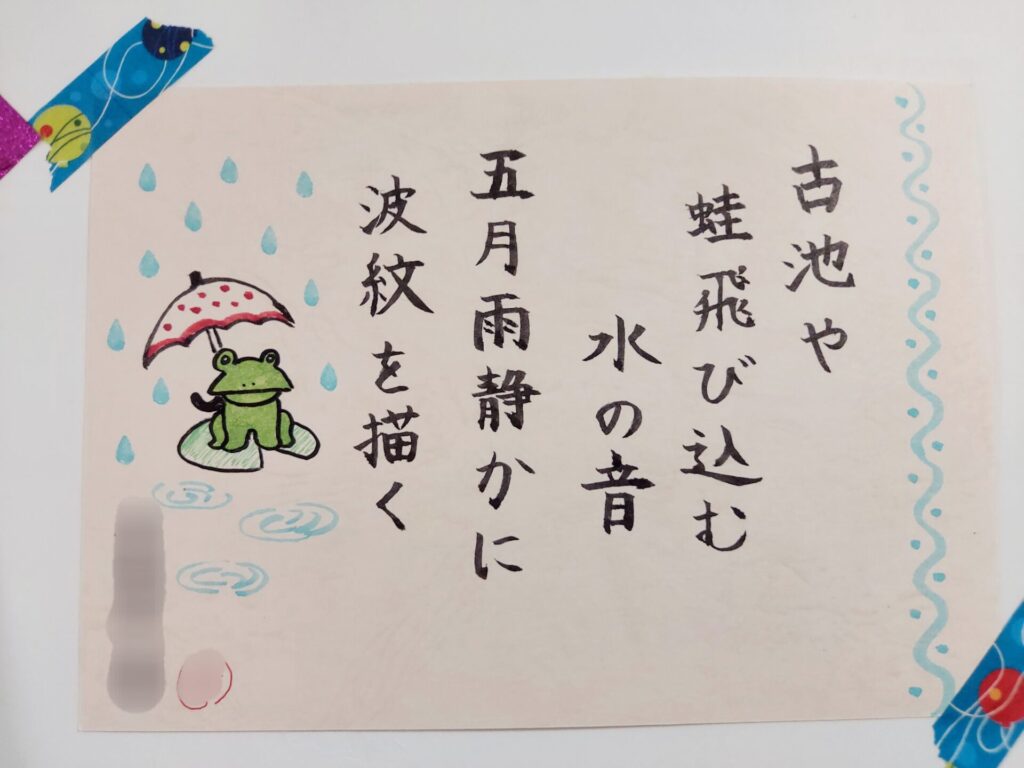 古池や
蛙飛び込む
水の音
五月雨静かに
波紋を描く